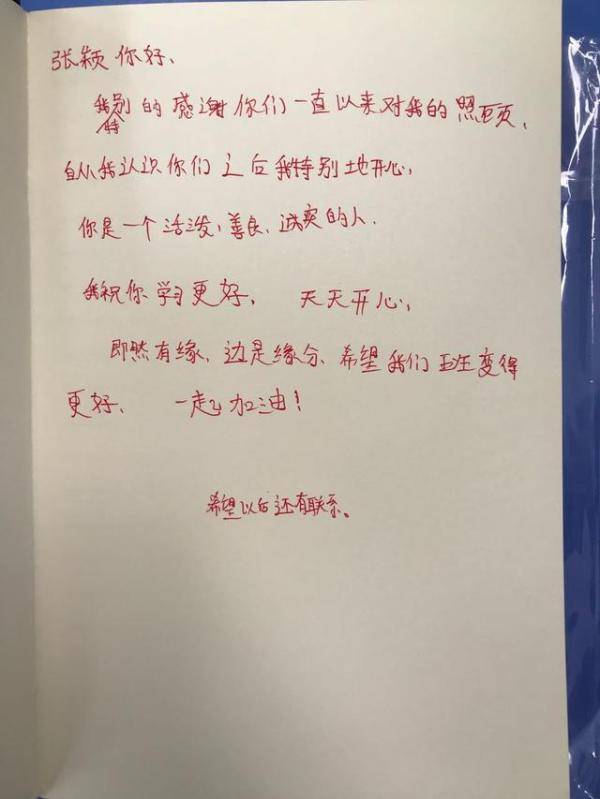 张颖你好、
我特别的感谢你们一直以来对我的照顾,
自从我认识你们之后我特别地开心,
你是一个活泼,善良、诚实的人.
我祝你学习更好, 天天开心,
即然有缘、边是缘分、希望我们班变得
更好、 一起加油!
希望以后还有联系。